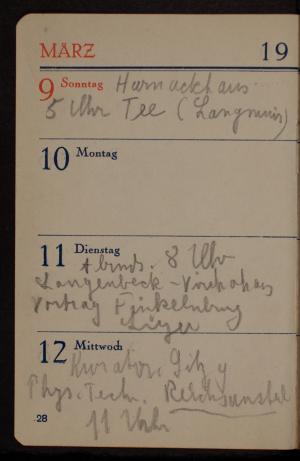 MÄRZ 19
9 Sonntag Harnackhaus
5 Uhr Tee (Langmuir)
10 Montag
11 Dienstag
Abends. 8 Uhr
Langenbeck-Virchohaus
Vortrag Finkelnburg
12 Mittwoch
Kurator. Sitz
Phys. Techn. Reichsanstal
11 Uhr
28